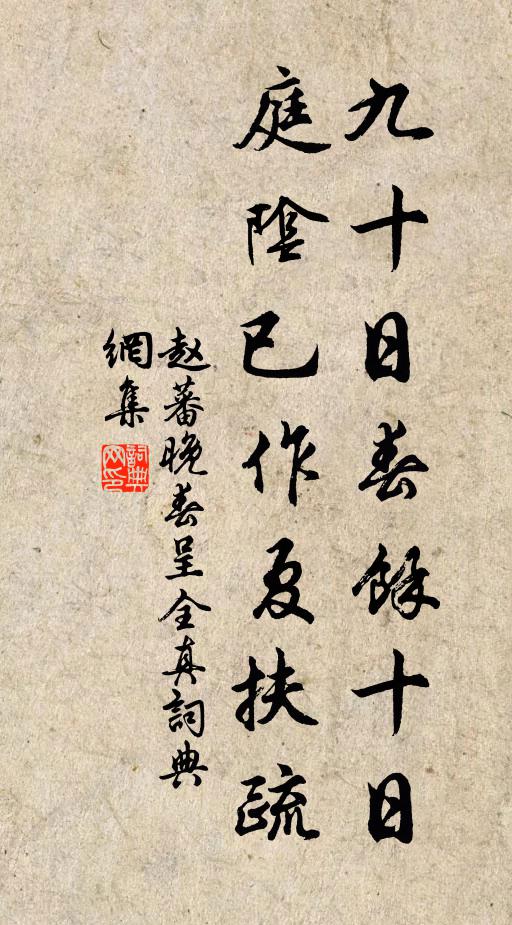 九十日春餘十日
庭陰已作夏扶疏
赵蕃晚春呈全真詞典
網集
詞典网印